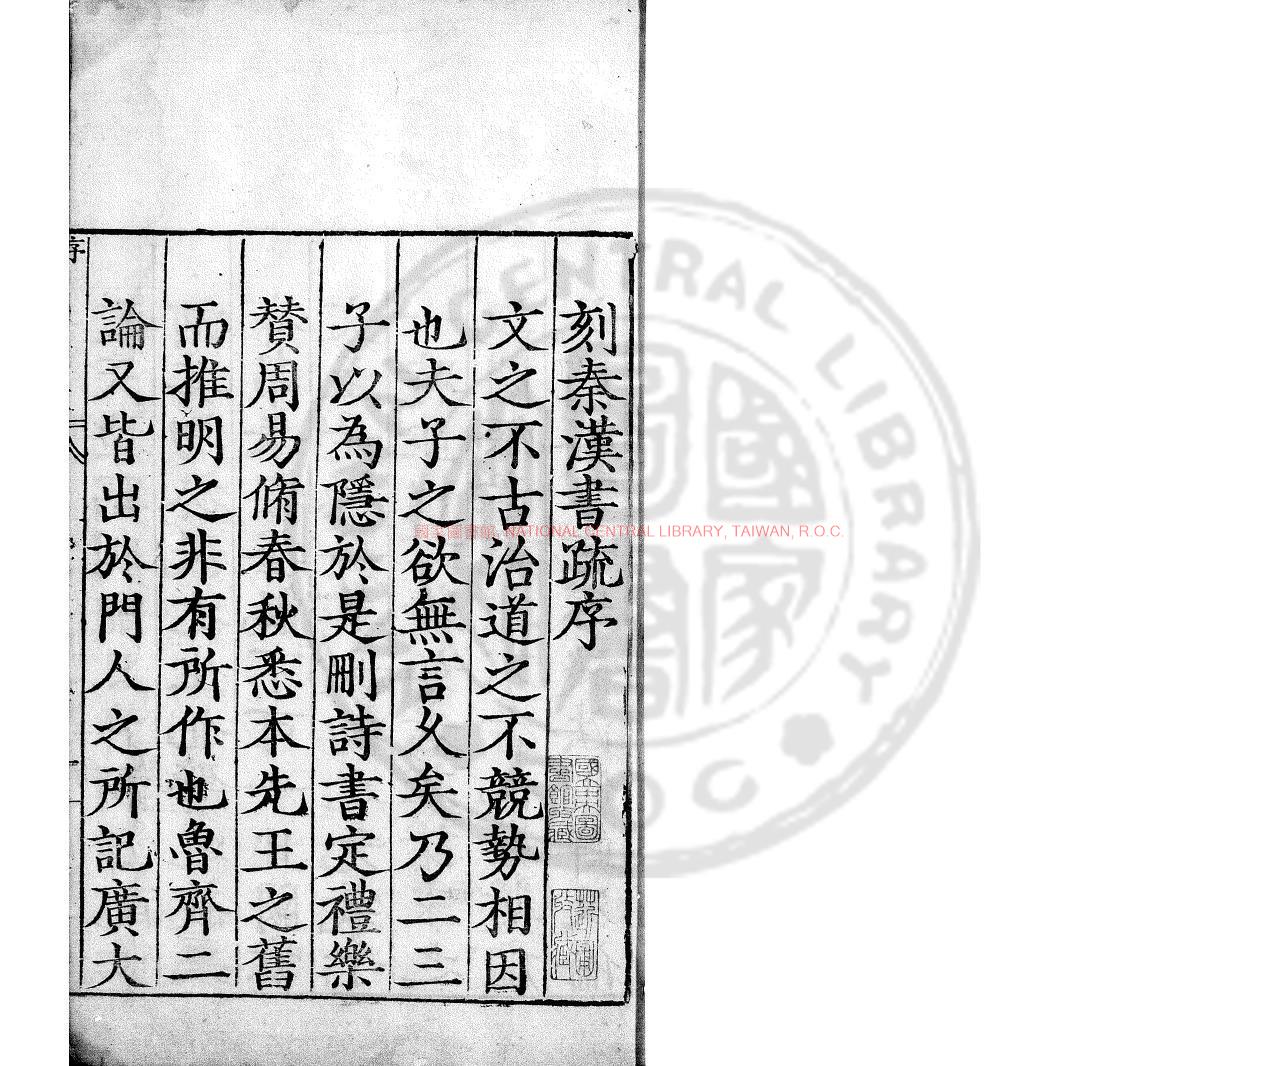 刻秦漢書疏序
文之不古治道之不競勢相因
也夫子之欲無言久矣乃二三
子以為隱於是刪詩書定禮樂
賛周易脩春秋悉本先王之舊
而推明之非有所作也魯齊二
論又皆出於門人之所記廣大
序
國家圖書館, NATIONAL CENTRAL LIBRARY, TAIWAN, R.O.C.
NATIONAL CENTRAL LIBRARY
ROC